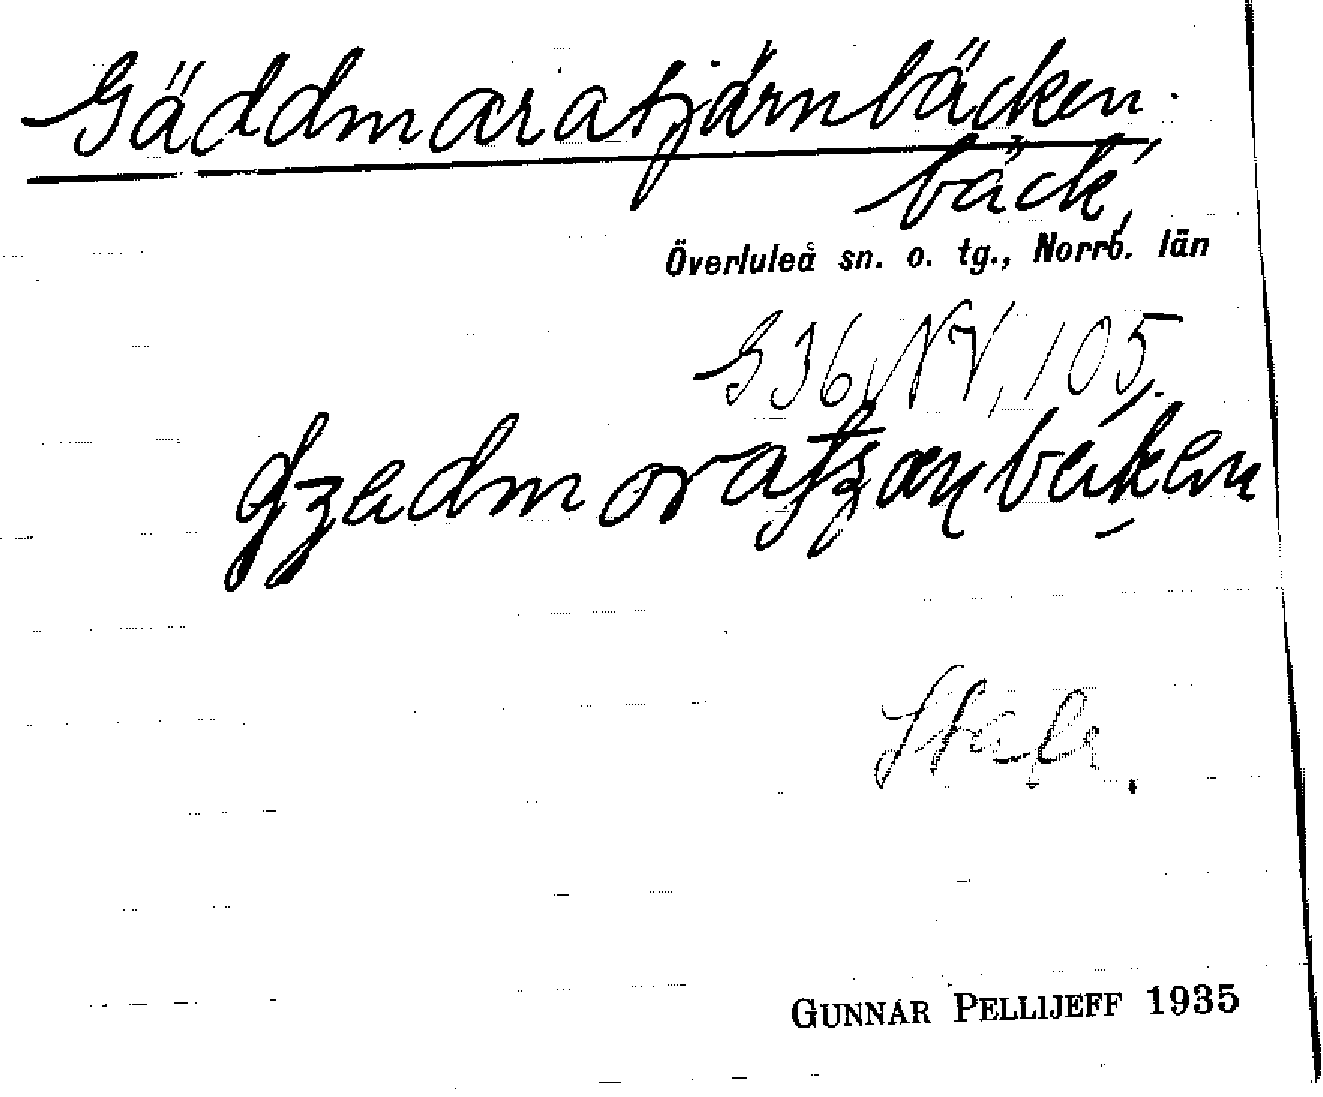 Gäddmaratjärnbäcken.
bäck,
Överluleå sn. o. tg., Norrb. län
G36, NV, 105.
GUNNAR PELLIJEFF 1935